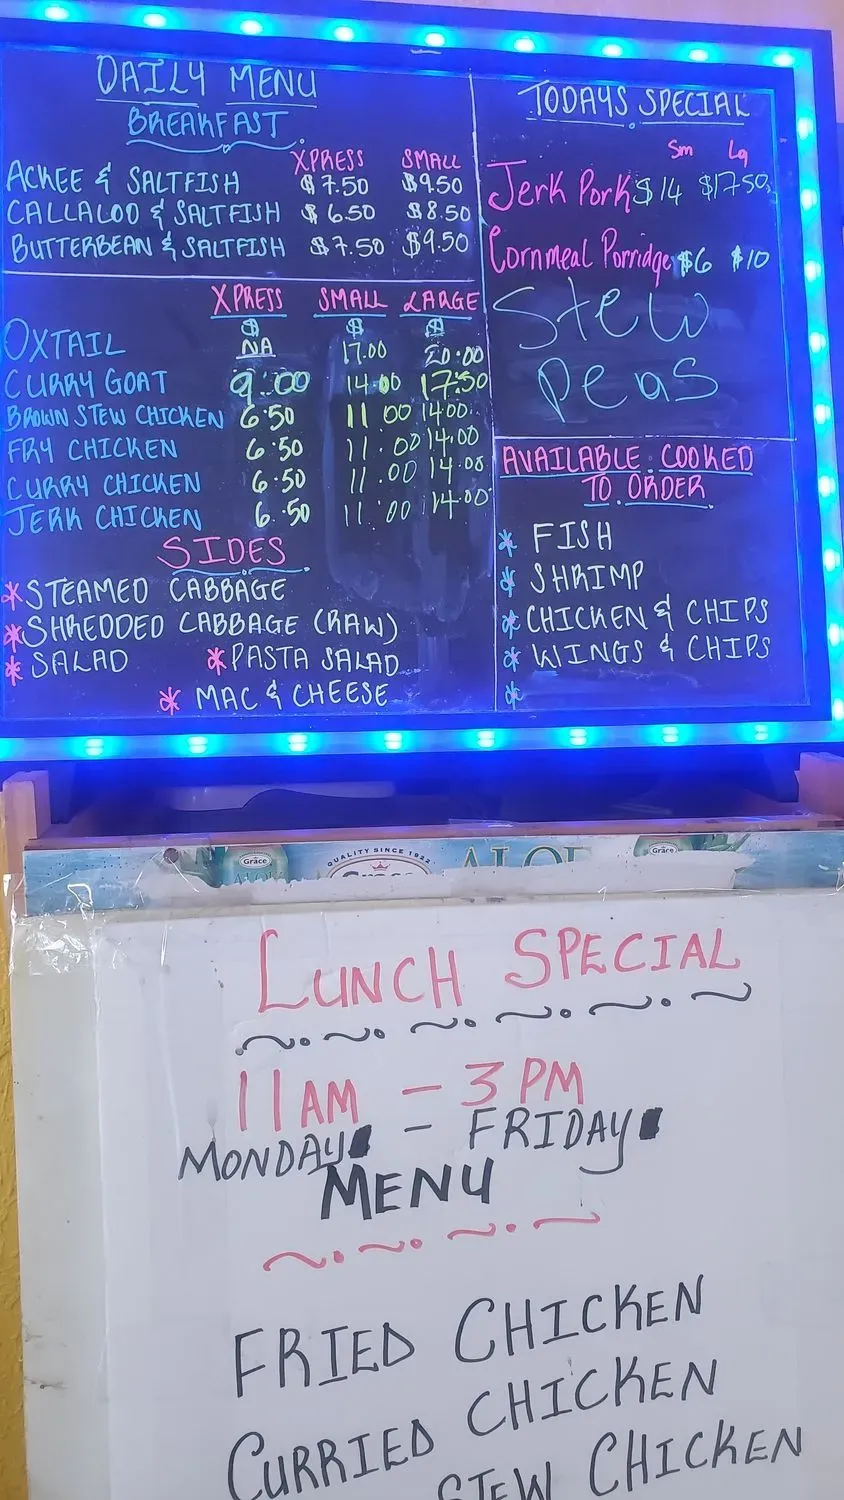 DAILY MENU
BREAKFAST
XPRESS SMALL
ACKEE & SALTFISH $7.50 $9.50
CALLALOO & SALTFISH $6.50 $8.50
BUTTERBEAN & SALTFISH $7.50 $9.50
XPRESS SMALL LARGE
$ $ $
OXTAIL NA 17.00 20.00
CURRY GOAT 9.00 14.00 17.50
BROWN STEW CHICKEN 6.50 11.00 14.00
FRY CHICKEN 6.50 11.00 14.00
CURRY CHICKEN 6.50 11.00 14.00
JERK CHICKEN 6.50 11.00 14.00
SIDES
* STEAMED CABBAGE
* SHREDDED CABBAGE (RAW)
* SALAD * PASTA SALAD
* MAC & CHEESE
TODAYS SPECIAL
Sm Lg
Jerk Pork $14 $17.50
Cornmeal Porridge $6 $10
Stew
Peas
AVAILABLE COOKED
TO ORDER
* FISH
* SHRIMP
* CHICKEN & CHIPS
* WINGS & CHIPS
*
QUALITY SINCE 1922
Grace
ALOE
Grace
LUNCH SPECIAL
11AM - 3PM
MONDAY - FRIDAY
MENU
FRIED CHICKEN
CURRIED CHICKEN
STEW CHICKEN